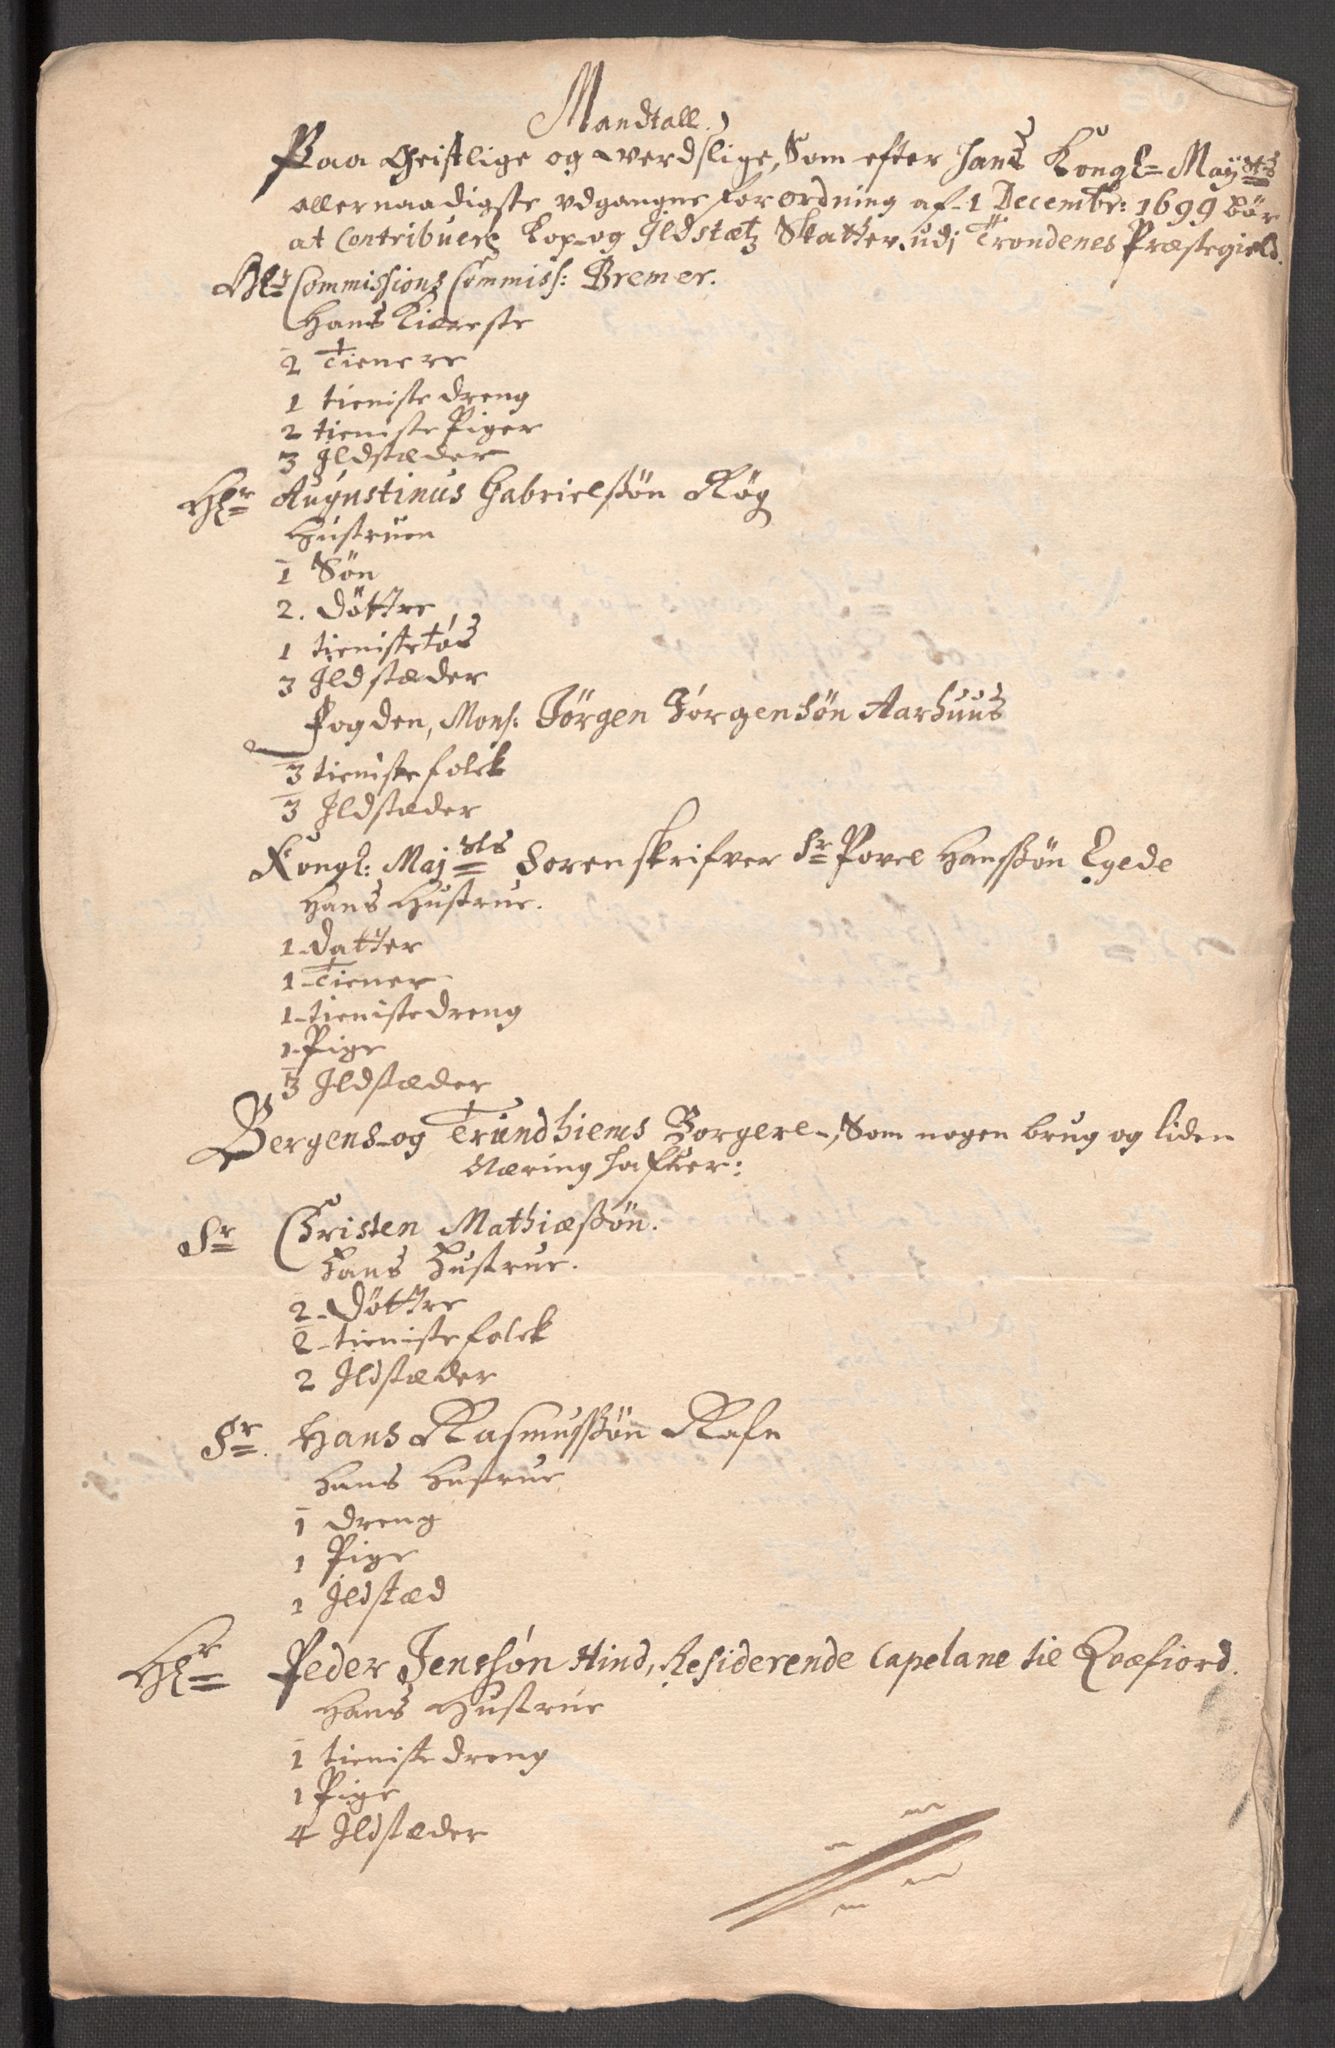 Mandtall
Paa Geistlige og verdslige, Som efter Hans Kongl= Mayts
allernaadigste udgangne forordning af 1 Decembr: 1699 bör
at Contribuere kop- og Ildstætz Skatter udj Trondenes Præstegield.
Hr Commissions Commiss: Bremer.
Hans Kiæreste
2 Tienere
1 tieniste dreng
2 tieniste Piger
3 Ildstæder
Hr Augustinus Gabrielssön Røg
Hustruen
1 Sön
2. Döttre
1 tienistetös
3 Ildstæder
Fogden, Mons: Jörgen Jörgensön Aarhuus
3 tieniste folck
3 Ildstæder
Kongl: Majsts Sorenskrifver Sr Povel Hanssön Egede
Hans Hustrue.
1 datter
1 Tiener
1 tienistedreng
1 Pige
3 Ildstæder
Bergens og Trundhiems Borgere, Som nogen brug og liden
Næring hafver:
Sr Christen Mathiæssön.
Hans Hustrue.
2 Döttre
2 tieniste folck
2 Ildstæder
Sr. Hans Rasmussön Rafn
Hans Hustrue
1 dreng
1 Pige
1 Ildstæd
Hr Peder Jenssön Hind, Residerende Capelane til Qvæfiord.
Hans Hustrue
1 tieniste dreng
1 Pige
4 Ildstæder